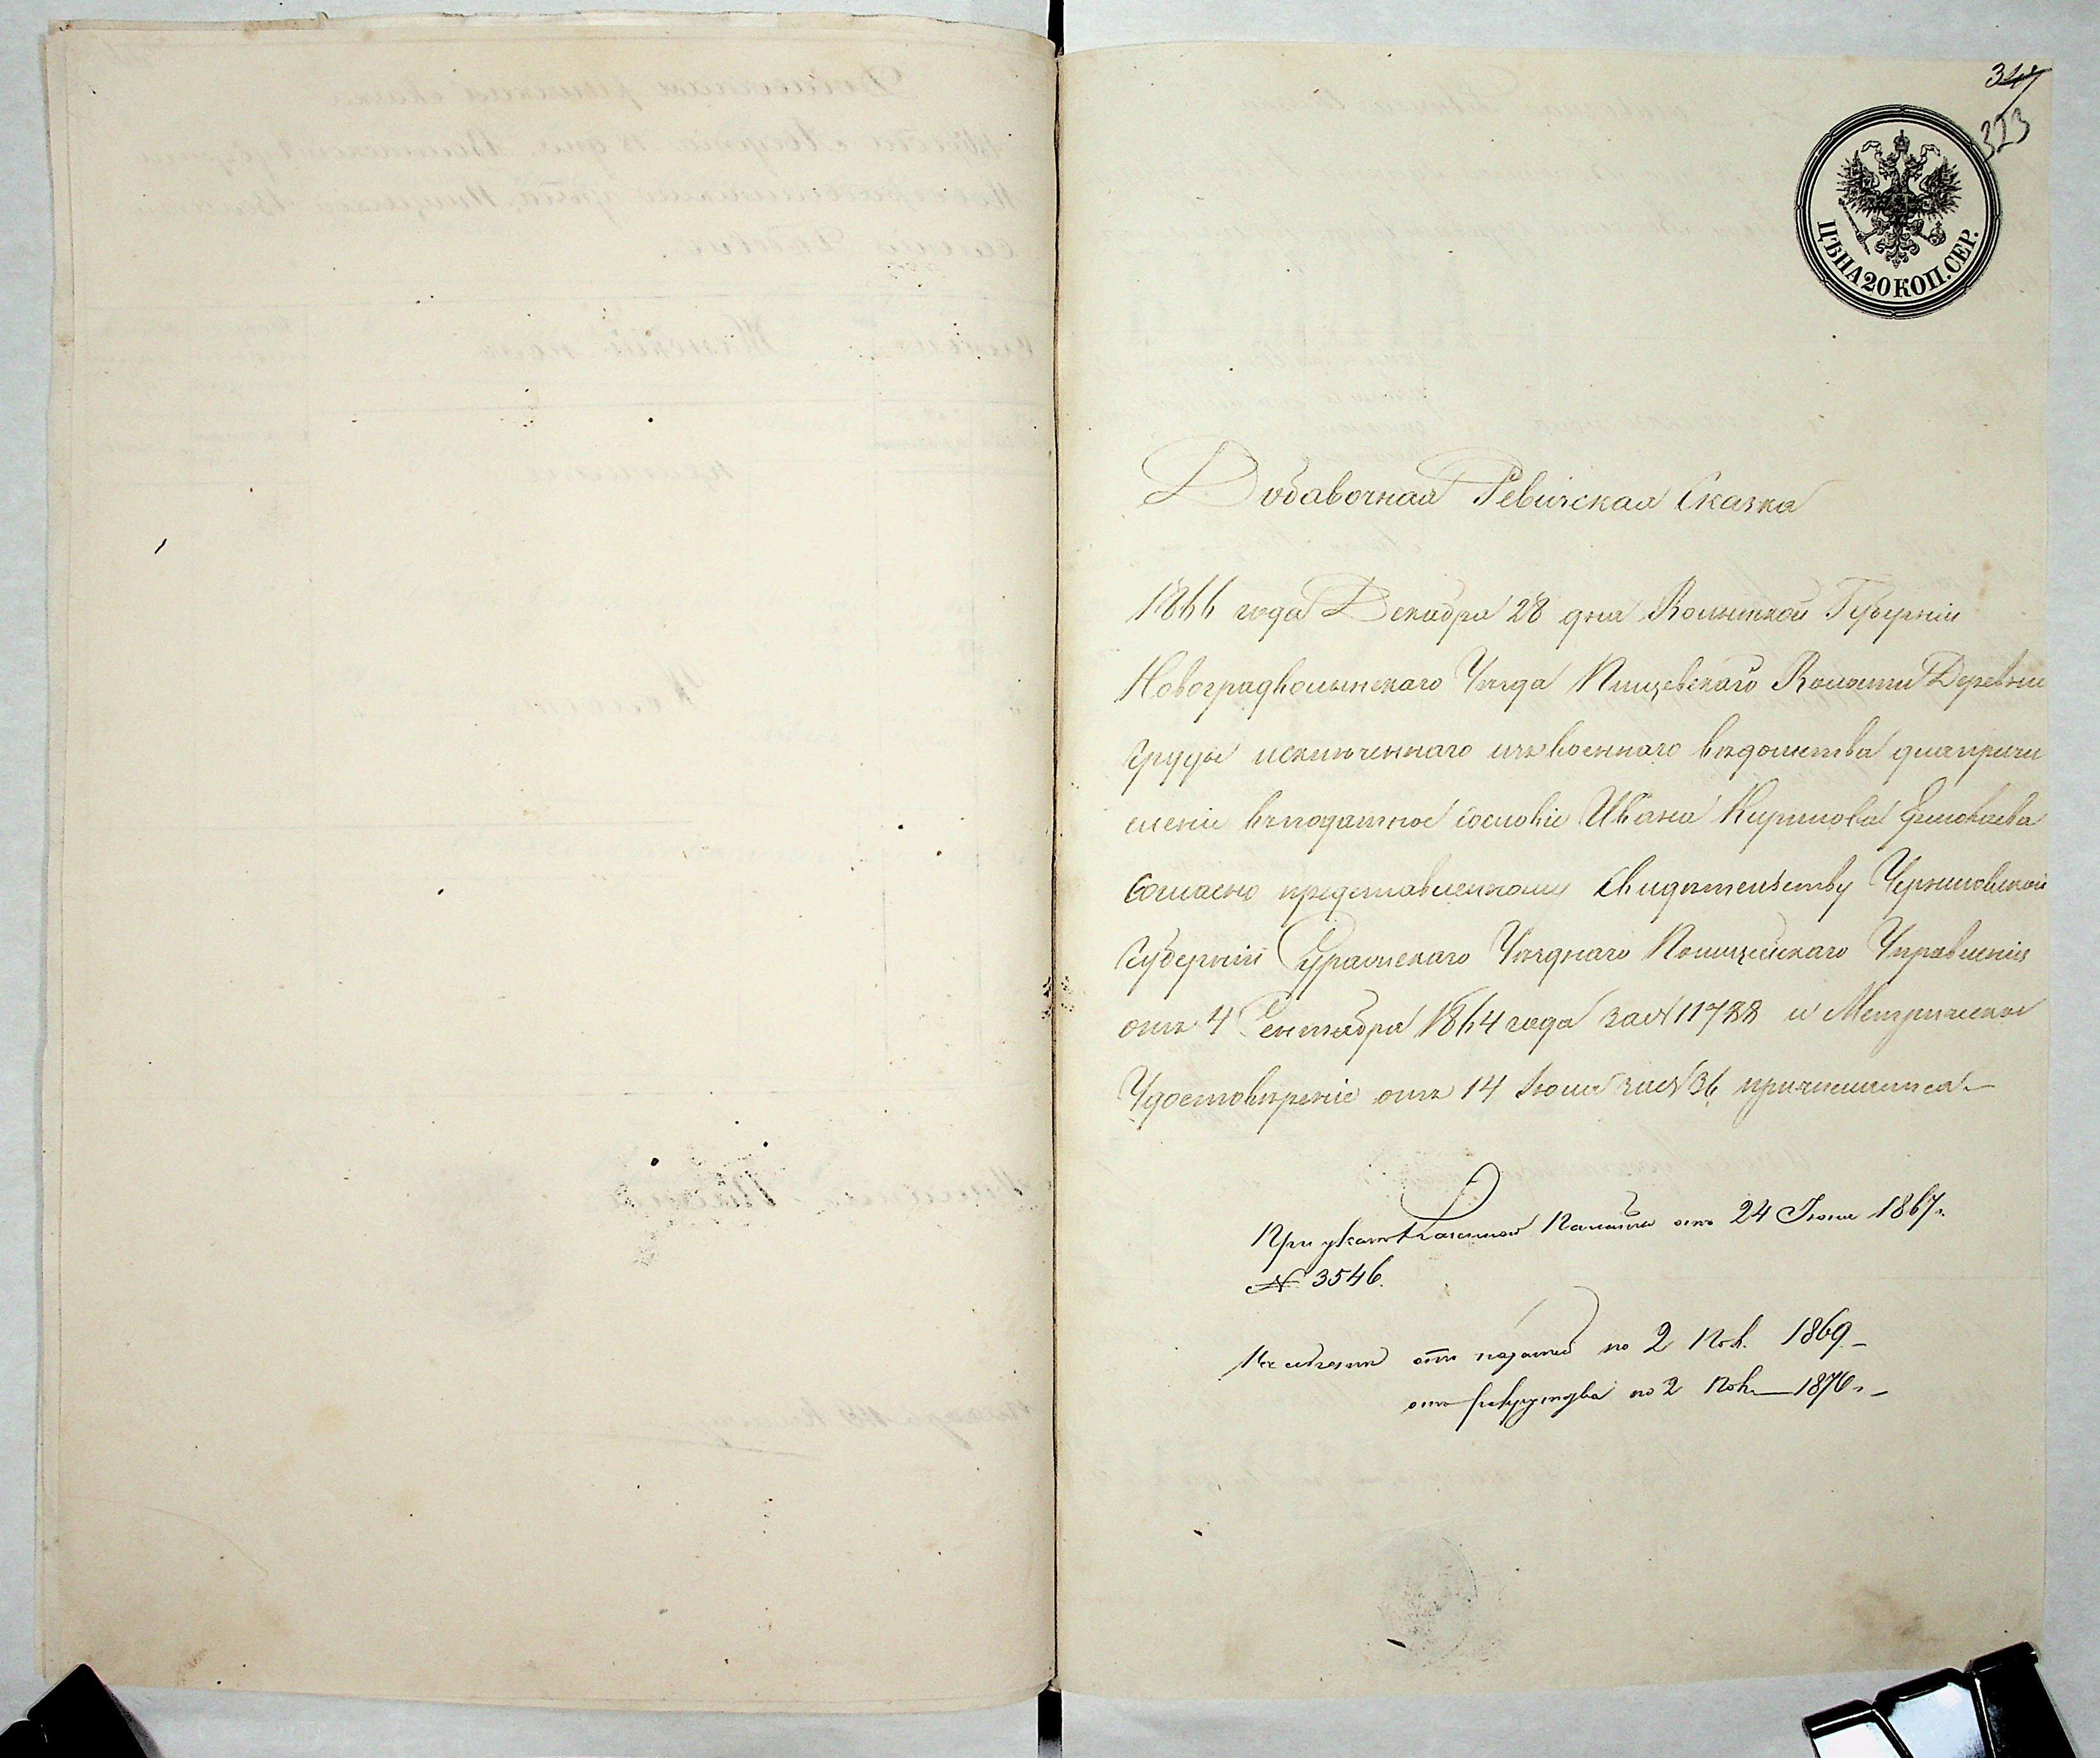 347
323
ЦѢНА 20 КОП. СЕР.
Добавочная Ревизская Сказка
1866 года Декабря 28 дня Волынской Губерніи
Новоградволынскаго Уѣзда Пищевскаго Волости Деревни
Груды исключеннаго изъ военнаго вѣдомства для причи
сленія въ податное сословіе Ивана Кирилова
Согласно представленному Свидѣтельству Черниговской
Губерніи Суражскаго Уѣзднаго Полицейскаго Управленія
отъ 4 Сентября 1864 года за № 11788 и Метрическое
Удостовѣреніе отъ 14 Іюля за № 36 причисляется
При указѣ Казенной Палаты отъ 24 Іюня 1867 г.
№ 3546.
отъ податей по 2 пол. 1869
отъ рекрутства по 2 пол. 1870 г.